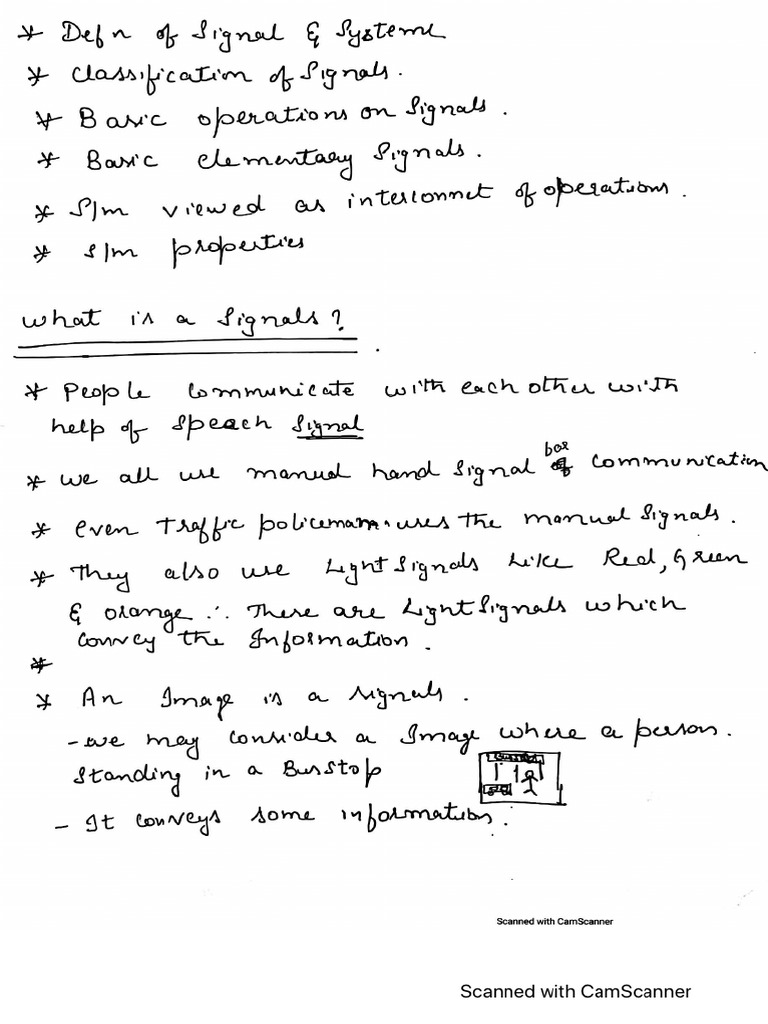 * Defn of Signal & Systems
* Classification of Signals.
* Basic operations on Signals.
* Basic elementary Signals.
* S/m viewed as interconnet of operations.
* S/m properties
What is a Signals?
* People Communicate with each other with
help of Speach Signal
* we all use manual hand Signal for Communication
* even traffic policeman uses the manual Signals.
* They also use Light Signals Like Red, Green
& orange ∴ These are Light Signals which
convey the Information.
*
* An Image is a signals.
- we may consider a Image where a person.
Standing in a Bus Stop
- It conveys some information.
Scanned with CamScanner
Scanned with CamScanner